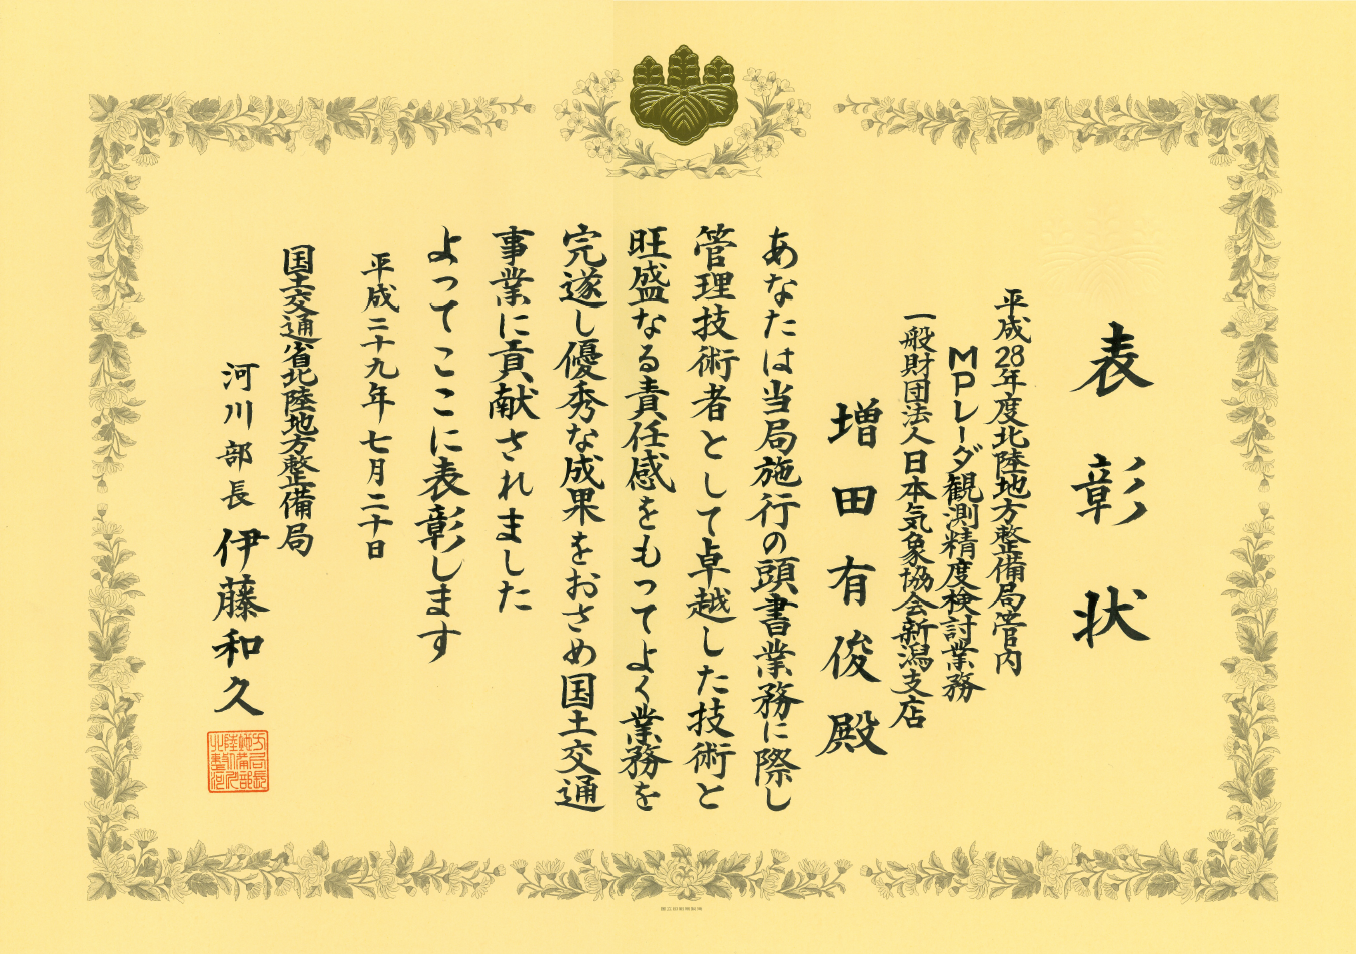 表彰状
平成28年度北陸地方整備局管内
MPレーダ観測精度検討業務
一般財団法人日本気象協会新潟支店
増田有俊殿
あなたは当局施行の頭書業務に際し
管理技術者として卓越した技術と
旺盛なる責任感をもってよく業務を
完遂し優秀な成果をおさめ国土交通
事業に貢献されました
よってここに表彰します
平成二十九年七月二十日
国土交通省北陸地方整備局
河川部長 伊藤和久